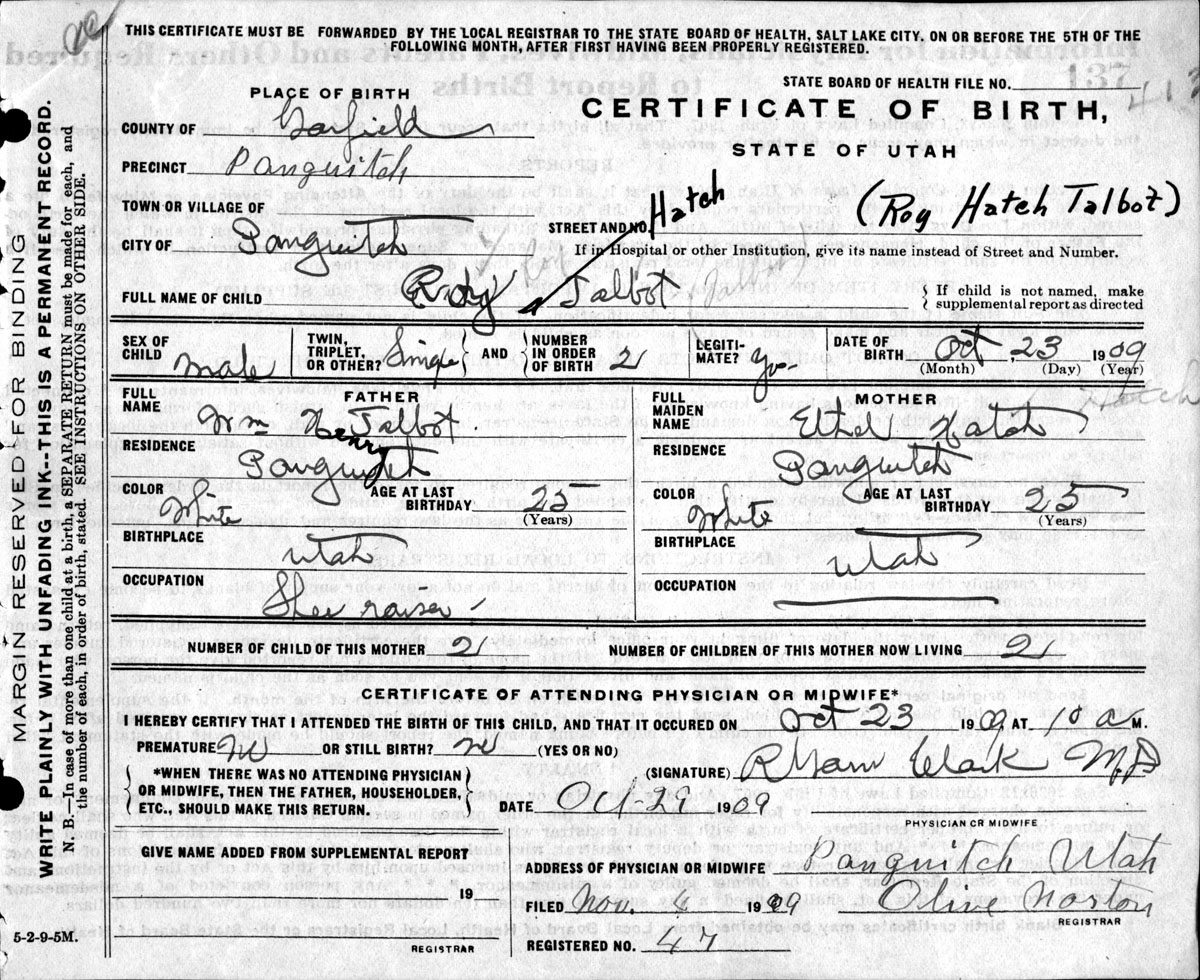 THIS CERTIFICATE MUST BE FORWARDED BY THE LOCAL REGISTRAR TO THE STATE BOARD OF HEALTH, SALT LAKE CITY, ON OR BEFORE THE 5TH OF THE
FOLLOWING MONTH, AFTER FIRST HAVING BEEN PROPERLY REGISTERED.
MARGIN RESERVED FOR BINDING
WRITE PLAINLY WITH UNFADING INK--THIS IS A PERMANENT RECORD.
N. B.—In case of more than one child at a birth, a SEPARATE RETURN must be made for each, and
the number of each, in order of birth, stated. SEE INSTRUCTIONS ON OTHER SIDE.
STATE BOARD OF HEALTH FILE NO.
137
PLACE OF BIRTH
CERTIFICATE OF BIRTH,
STATE OF UTAH
COUNTY OF Garfield
PRECINCT Panguitch
TOWN OR VILLAGE OF
(Roy Hatch Talbot)
STREET AND NO. Hatch
CITY OF Panguitch
If in Hospital or other Institution, give its name instead of Street and Number.
FULL NAME OF CHILD Roy Talbot
If child is not named, make
supplemental report as directed
SEX OF CHILD Male
TWIN, TRIPLET, OR OTHER? Single
AND NUMBER IN ORDER OF BIRTH 2
LEGITIMATE? yes
DATE OF BIRTH Oct 23 1909
(Month) (Day) (Year)
FATHER
FULL NAME Wm Henry Talbot
RESIDENCE Panguitch
COLOR White
AGE AT LAST BIRTHDAY 25
(Years)
BIRTHPLACE Utah
OCCUPATION Shee raiser
MOTHER
FULL MAIDEN NAME Ethel Hatch
Hatch
RESIDENCE Panguitch
COLOR White
AGE AT LAST BIRTHDAY 25
(Years)
BIRTHPLACE Utah
OCCUPATION
NUMBER OF CHILD OF THIS MOTHER 2 NUMBER OF CHILDREN OF THIS MOTHER NOW LIVING 2
CERTIFICATE OF ATTENDING PHYSICIAN OR MIDWIFE*
I HEREBY CERTIFY THAT I ATTENDED THE BIRTH OF THIS CHILD, AND THAT IT OCCURED ON Oct 23 1909 AT 10 a M.
PREMATURE no OR STILL BIRTH? no (YES OR NO)
*WHEN THERE WAS NO ATTENDING PHYSICIAN
OR MIDWIFE, THEN THE FATHER, HOUSEHOLDER,
ETC., SHOULD MAKE THIS RETURN.
(SIGNATURE) Clark MD
DATE Oct-29 1909
PHYSICIAN OR MIDWIFE
GIVE NAME ADDED FROM SUPPLEMENTAL REPORT
19
REGISTRAR
ADDRESS OF PHYSICIAN OR MIDWIFE Panguitch Utah
FILED Nov. 1909 Olive Norton
REGISTRAR
REGISTERED NO. 47
5-2-9-5M.